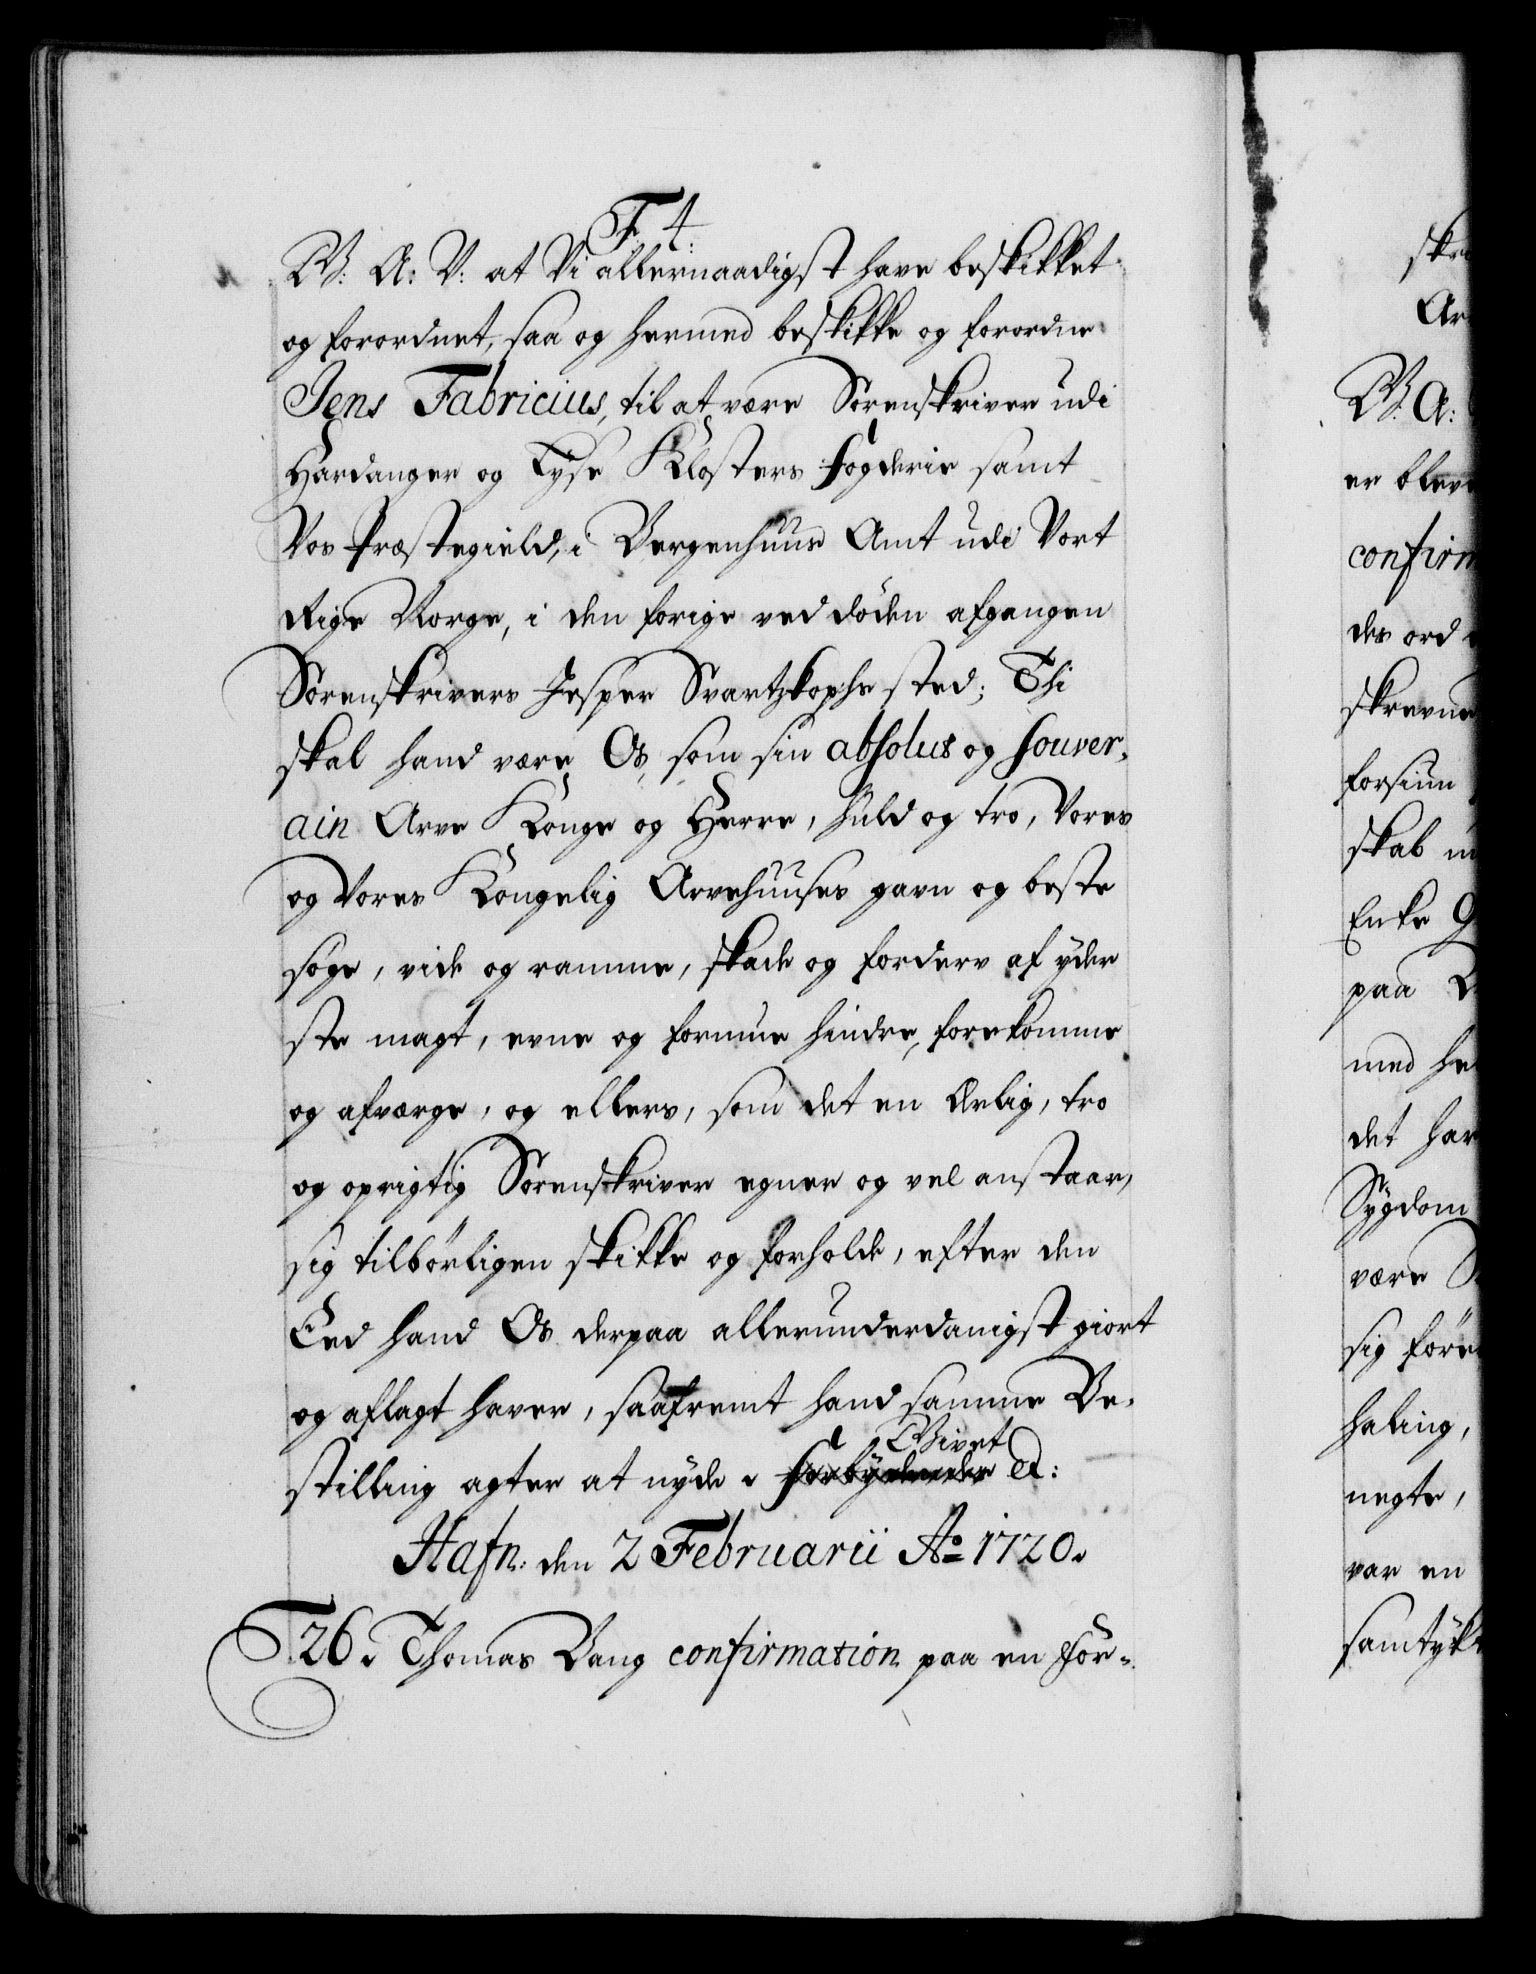 F 4.
W: A: V: at Vi allernaadigst have beskikket
og forordnet, saa og hermed beskikke og forordne
Jens Fabricius, til at være Sorenskriver udi
Hardanger og Lyse Klosters fogderie samt
Vos Præstegield, i Bergenhuus Amt udi Vort
Rige Norge, i den forige ved døden afgangen
Sorenskrivers Jesper Svartzkophs sted; Thi
skal hand være Os, som sin absolut og souver-
ain Arve Konge og Herre, huld og tro, Vores
og Vores Kongelig Arvehuuses gavn og beste
søge, vide og ramme, skade og forderv af yder
ste magt, evne og formue hindre, forekomme
og afværge, og ellers, som det en Ærlig, tro
og oprigtig Sorenskriver egner og vel anstaar,
sig tilbørligen skikke og forholde, efter den
Eed hand Os derpaa allerunderdanigst giort
og aflagt haver, saafremt hand samme Be-
stilling agter at nyde. forbydendes Givet &:
Hafn: den 2 Februarii Ao 1720.
F. 26. Thomas Bang confirmation paa en for-
skr
Ar
W. A:
er blev
confirm
des ord
skrevne
forsiun
skab
Enke
paa
med he
det har
Sygdom
være
sig
haling,
negte,
var en
samtykt